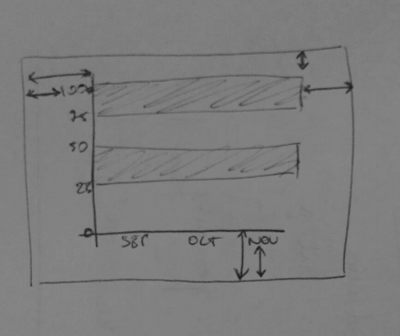 100
75
50
25
0
SEP OCT NOV